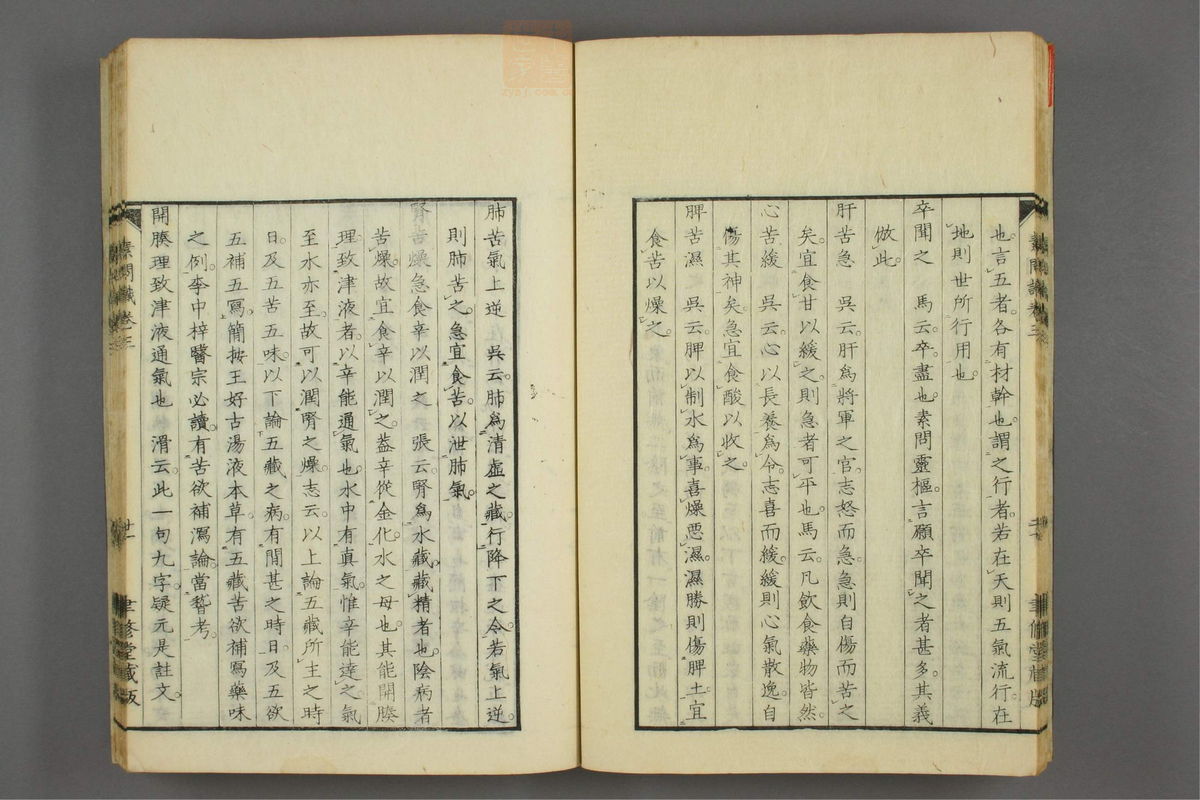 也言五者各有材幹也謂之行者若在天則五氣流行在
地則世所行用也
卒聞之　馬云卒盡也素問靈樞言願卒聞之者甚多其義
倣此
肝苦急　吳云肝爲將軍之官志怒而急急則自傷而苦之
矣宜食甘以緩之則急者可平也馬云凡飲食藥物皆然
心苦緩　吳云心以長養爲令志喜而緩緩則心氣散逸自
傷其神矣急宜食酸以收之
脾苦濕　吳云脾以制水爲事喜燥惡濕濕勝則傷脾土宜
食苦以燥之
肺苦氣上逆　吳云肺爲清虛之藏行降下之令若氣上逆
則肺苦之急宜食苦以泄肺氣
腎苦燥急食辛以潤之　張云腎爲水藏藏精者也陰病者
苦燥故宜食辛以潤之蓋辛從金化水之母也其能開腠
理致津液者以辛能通氣也水中有真氣惟辛能達之氣
至水亦至故可以潤腎之燥志云以上論五藏所主之時
日及五苦五味以下論五藏之病有間甚之時日及五欲
五補五寫簡按王好古湯液本草有五藏苦欲補寫藥味
之例李中梓醫宗必讀有苦欲補瀉論當稽考
開腠理致津液通氣也　滑云此一句九字疑元是註文
素問識卷三
世一
聿修堂藏版